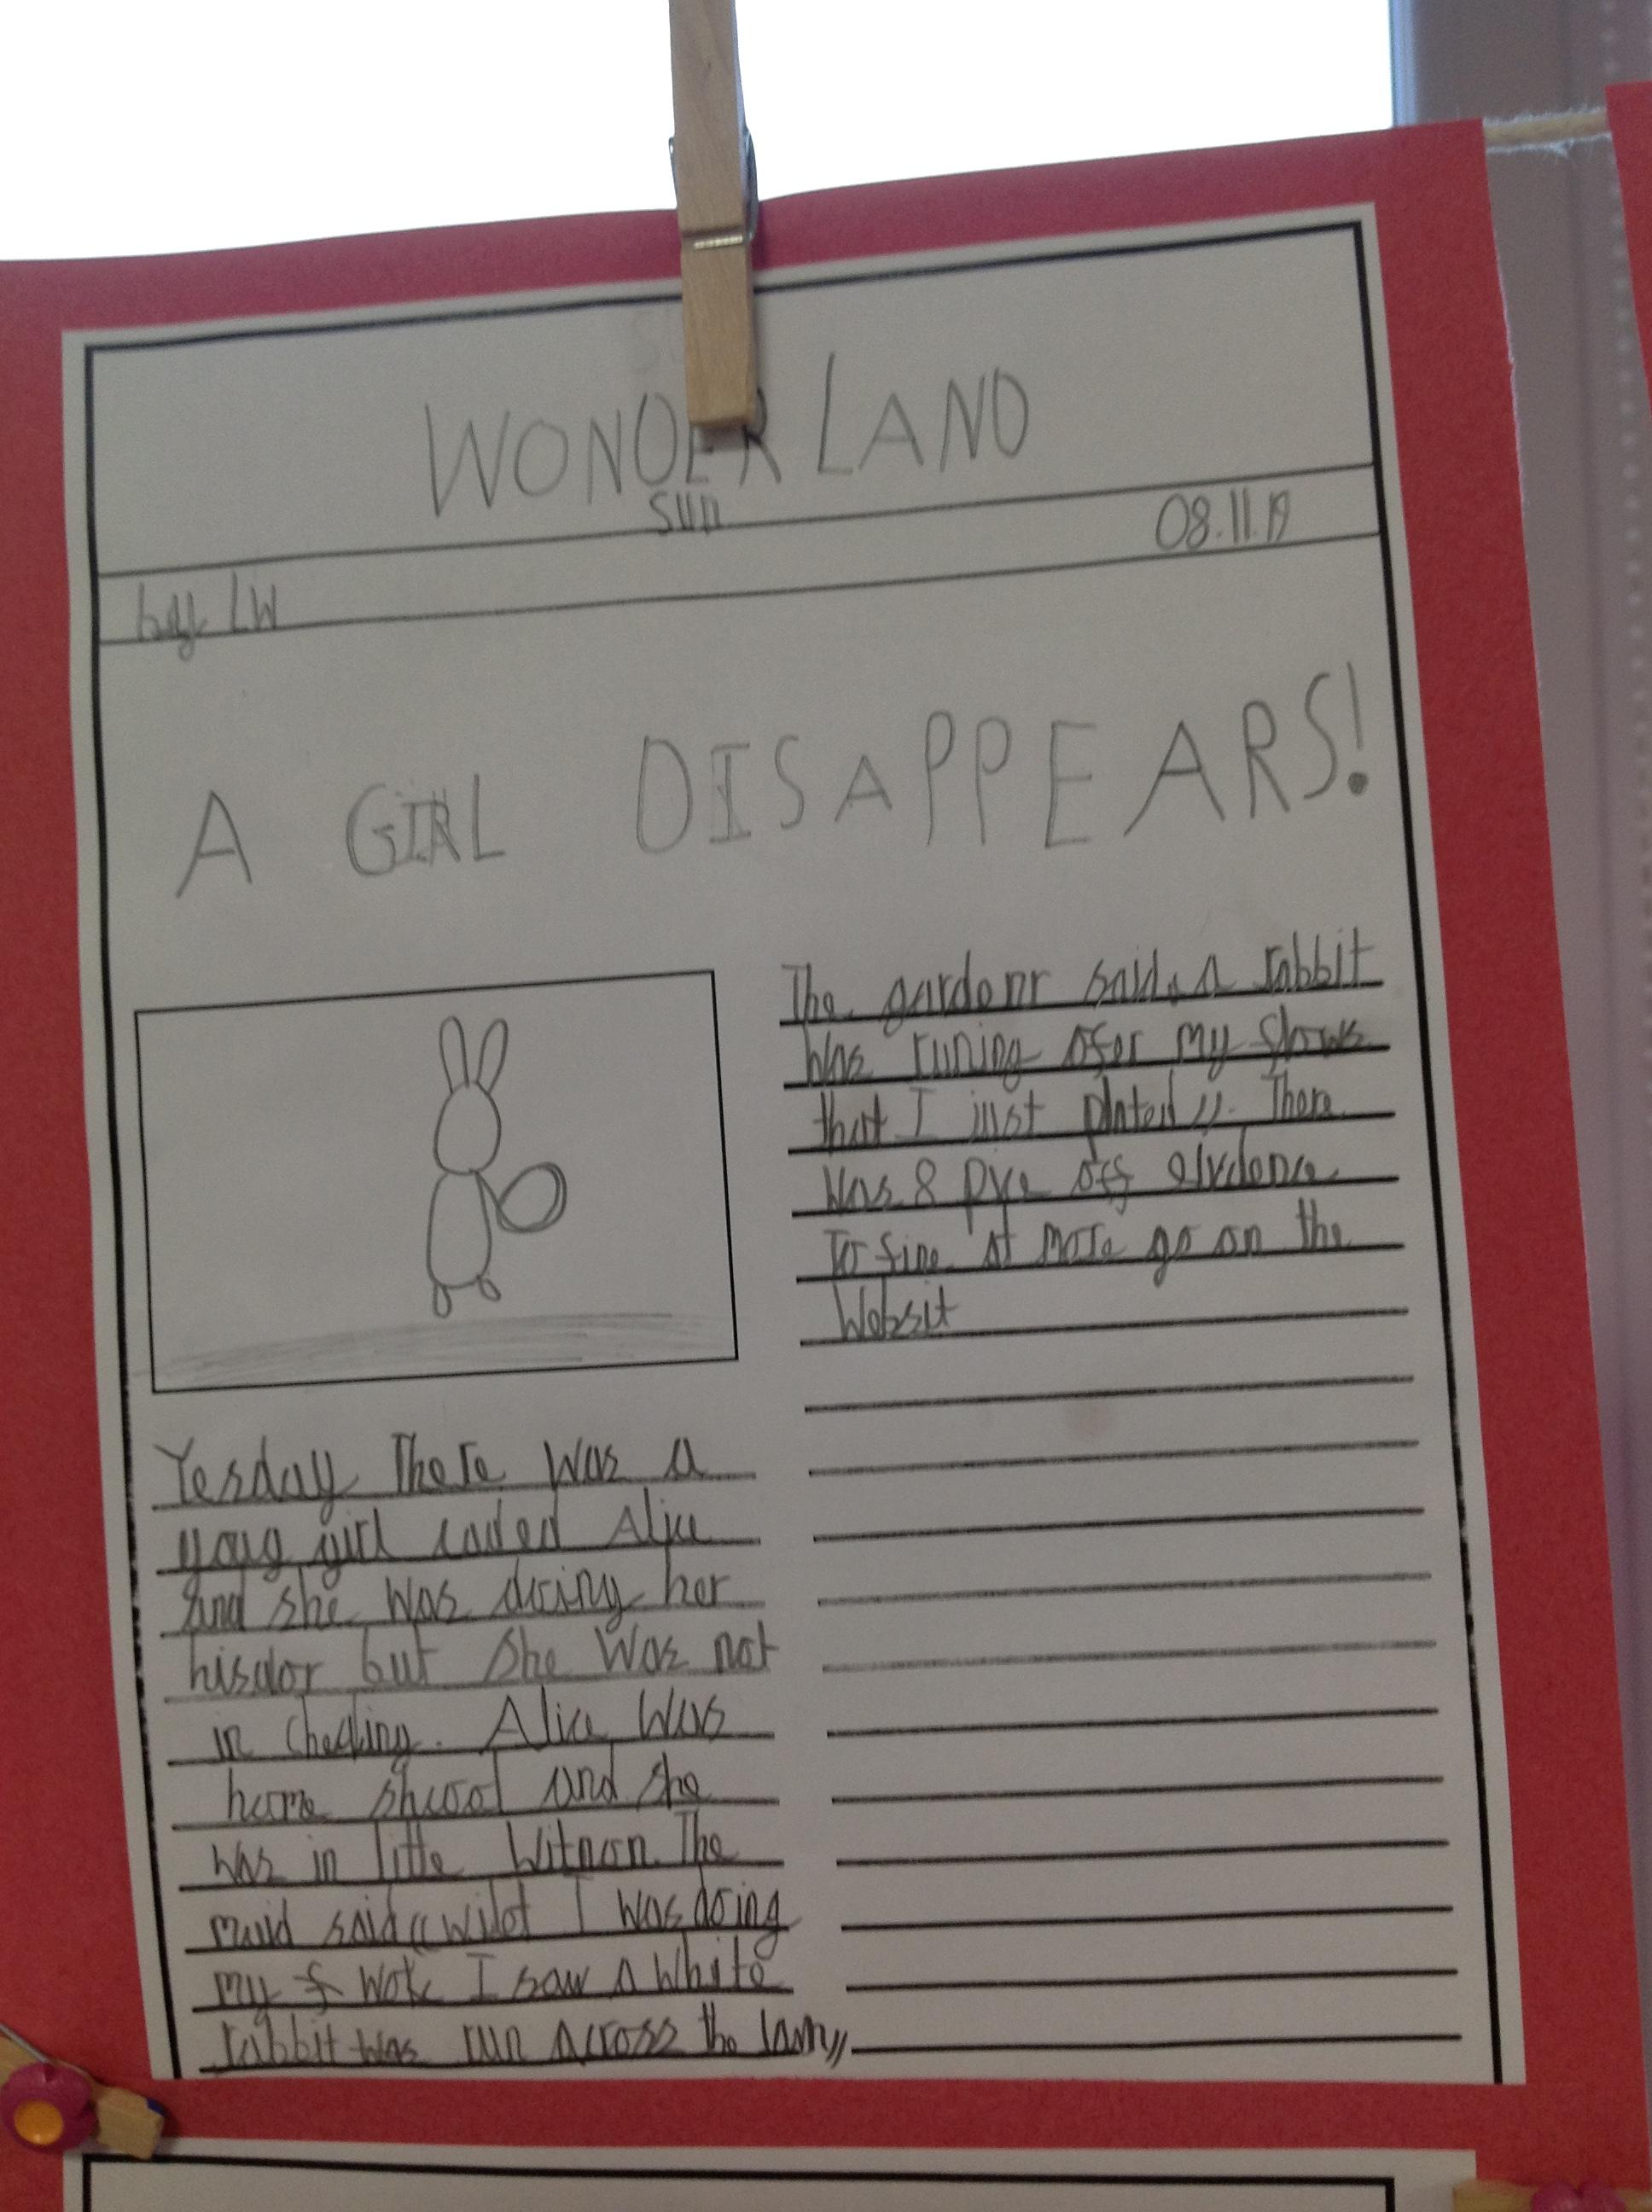 WONDER LAND
SUN
08.11.19
by LW
A GIRL DISAPPEARS!
Yesday There was a
youg girl called Alice
and she was doing her
hisdor but she was not
in cheking. Alice was
home shcool and she
was in litte Witnon. The
maid said "wilot I was doing
my wok I saw a white
rabbit was run across the lawn"
The gardenr said, a rabbit
was runing ofer my flows
that I just plated". There
was 8 pice off eivdence
To fine at more go on the
Websit